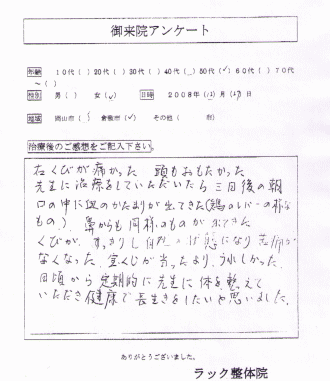 御来院アンケート
年齢 10代( ) 20代( ) 30代( ) 40代( ) 50代(✓) 60代( ) 70代
～( )
性別 男( ) 女(✓) 日時 2008年(12)月( )日
地域 岡山市( ) 倉敷市(✓) その他( 市)
治療後のご感想をご記入下さい。
右くびが痛かった 頭もおもたかった
先生に治療をしていただいたら三日後の朝
口の中に血のかたまりが出てきた(鶏のレバーの様な
もの)、鼻からも同様のものが出てきた
くびが、すっきりし 状態になり 苦痛が
なくなった、宝くじが当ったより、うれしかった。
日頃から定期的に先生に体を整えて
いただき健康で長生きをしたいや思いました。
ありがとうございました。
ラック整体院